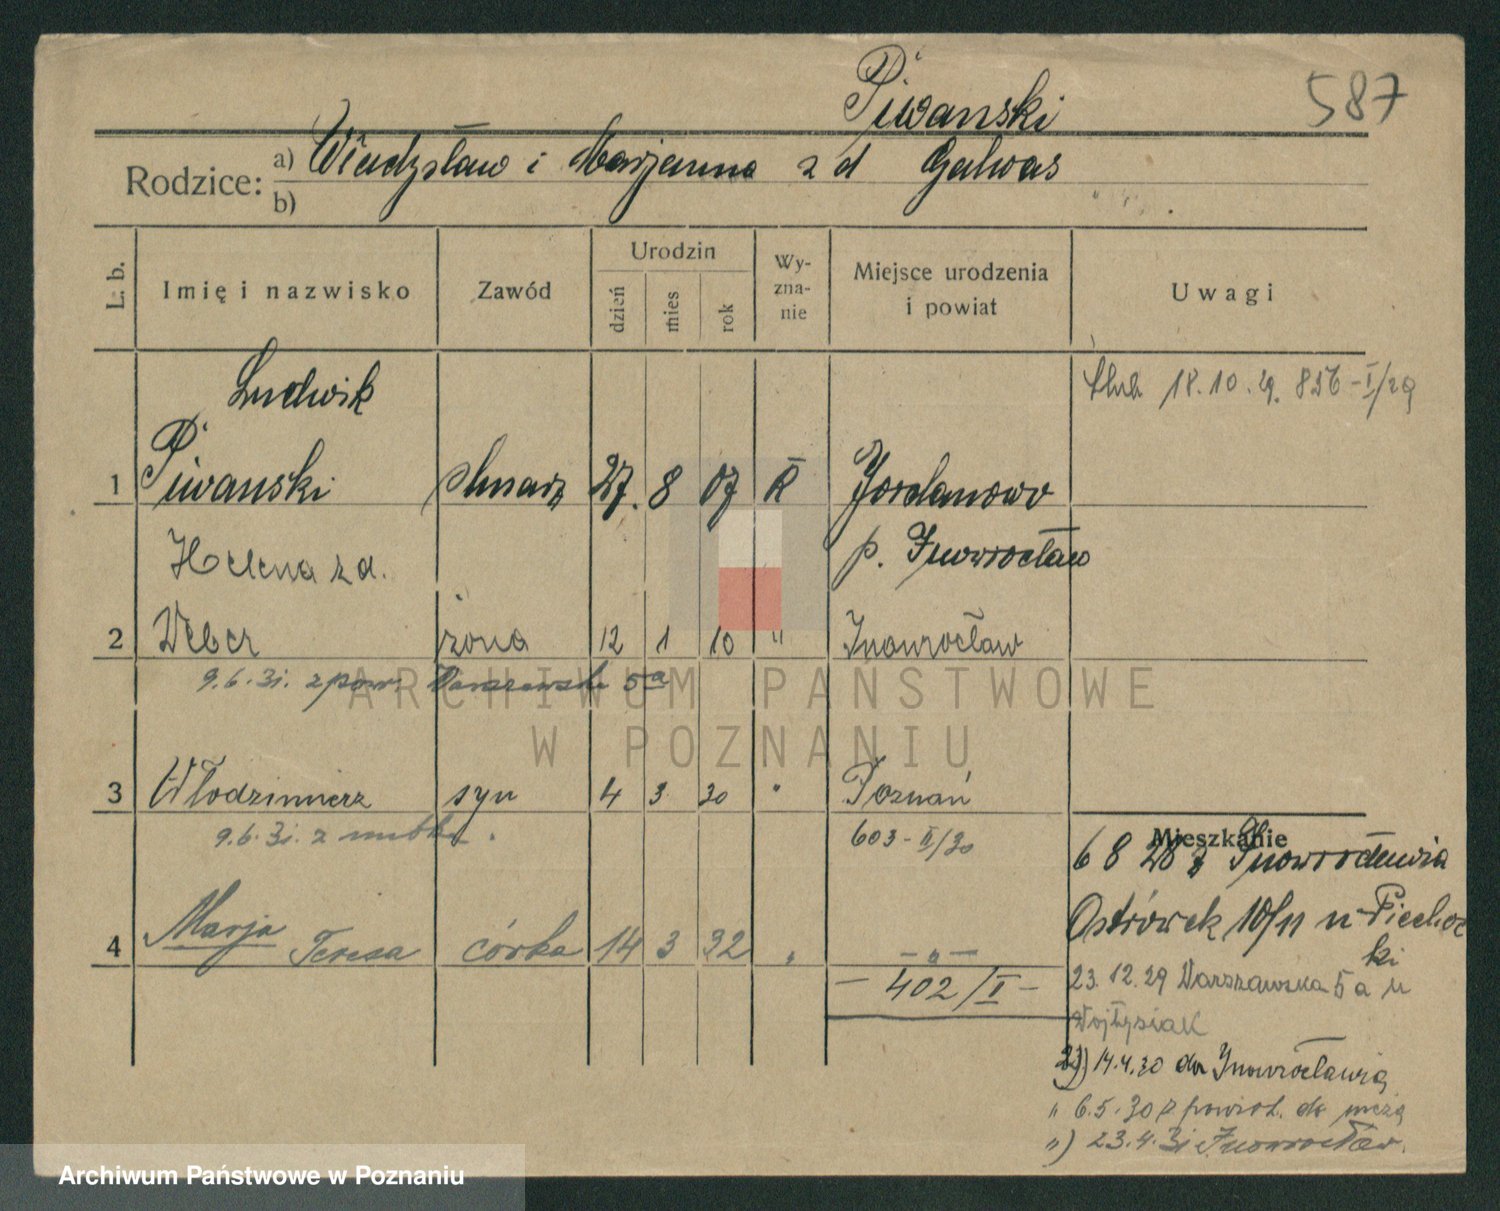 Piwanski
587
Rodzice: a) Władysław i Marjanna z d Galwas
b)
L. b. Imię i nazwisko Zawód Urodzin dzień mies rok Wy-zna-nie Miejsce urodzenia i powiat Uwagi
Ślub 18.10.29. 856-I/29
Ludwik
1 Piwanski 27. 8 07 R Jordanowo
Helena z d. p. Inowrocław
2 Weber żona 12 1 10 " Inowrocław
9.6.31. z pow. Warszawska 5a
3 Włodzimierz syn 4 3 30 " Poznań
9.6.31. z matką. 603-II/30
Mieszkanie
6 8 28 z Inowrocławia
Ostrówek 10/11 u Piechoc
4 Marja Teresa córka 14 3 32 " — " —
ki
— 402/I —
23.12.29 Warszawska 5a u
Wojtysiak
2)) 14.4.30 do Inowrocławia
" 6.5.30 z powrot. do męża
") 23.4.31 Inowrocław.
ARCHIWUM PAŃSTWOWE
W POZNANIU
Archiwum Państwowe w Poznaniu